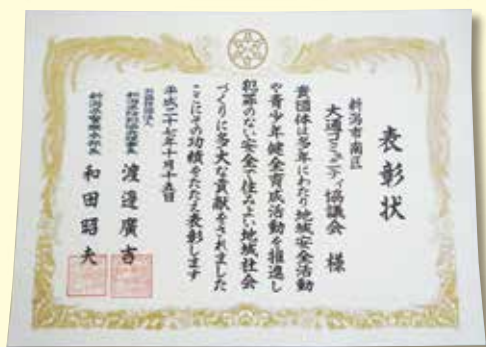 表彰状
新潟市南区
大通コミュニティ協議会 様
貴団体は多年にわたり地域安全活動
や青少年健全育成活動を推進し
犯罪のない安全で住みよい地域社会
づくりに多大な貢献をされました
ここにその功績をたたえ表彰します
平成二十七年十月十五日
公益社団法人
新潟県防犯協会理事長 渡邊廣吉
新潟県警察本部長 和田昭夫